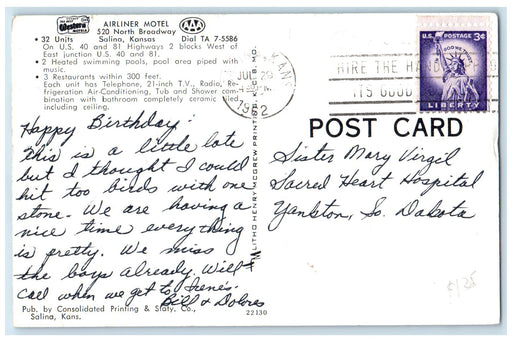 Western
AAA
AIRLINER MOTEL
520 North Broadway
Salina, Kansas
Dial TA 7-5586
• 32 Units
On U.S. 40 and 81 Highways 2 blocks West of
East junction U.S. 40 and 81.
• 2 Heated swimming pools, pool area piped with
music.
• 3 Restaurants within 300 feet.
Each unit has Telephone, 21-inch T.V., Radio, Re-
frigeration Air-Conditioning, Tub and Shower com-
bination with bathroom completely ceramic tiled
including ceiling.
Happy Birthday!
This is a little late
but I thought I could
hit too birds with one
stone. We are having a
nice time everything
is pretty. We miss
the boys already. Will
call when we get to Irene's.
Bill & Dolores
Pub. by Consolidated Printing & Staty. Co.,
Salina, Kans.
22130
LITHO HENRY MCGREW PRINTING K.C. 8, MO.
KANS.
JUL
1962
HIRE THE HA
ITS GOOD
U.S. POSTAGE 3¢
IN GOD WE TRUST
LIBERTY
POST CARD
Sister Mary Virgil
Sacred Heart Hospital
Yankton, So. Dakota